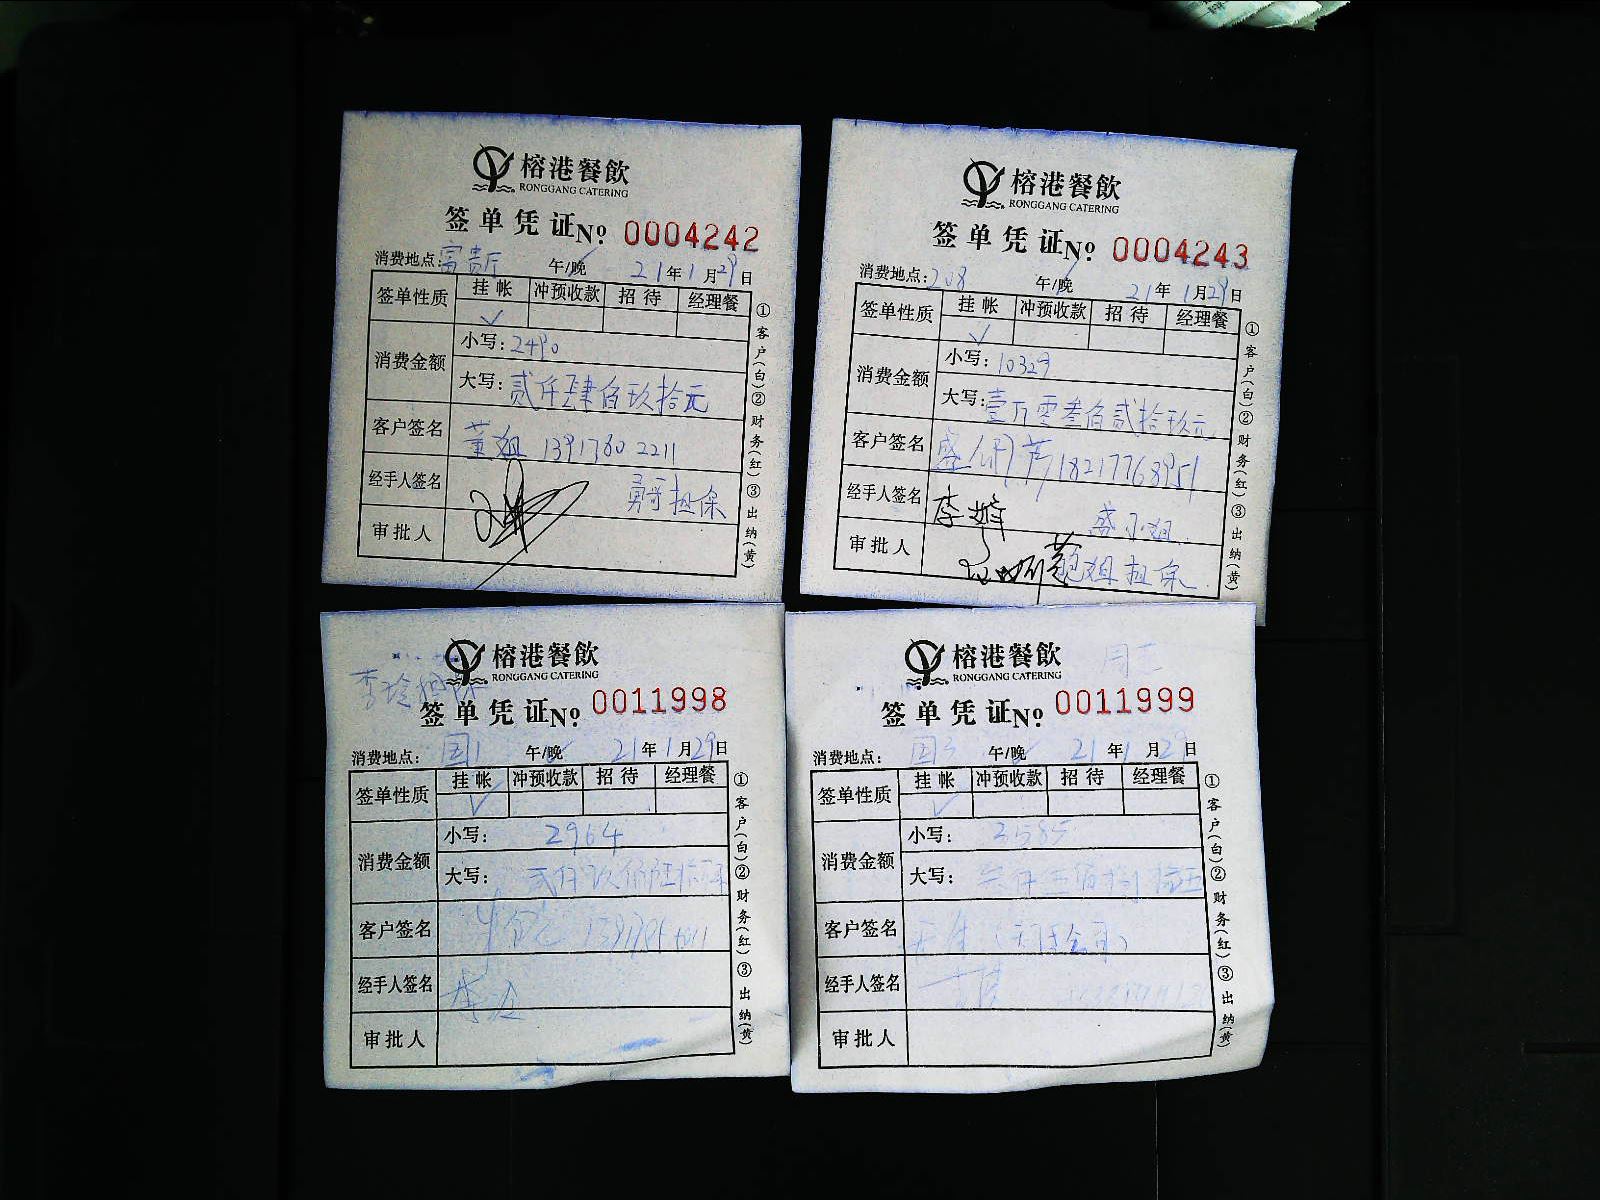 榕港餐飲
RONGGANG CATERING
签单凭证№ 0004242
消费地点:富贵厅 午/晚 21年1月29日
签单性质 挂帐 冲预收款 招待 经理餐
✓
消费金额 小写:2490
大写:贰仟肆佰玖拾元
客户签名 董姐 13917602211
经手人签名 勇哥担保
审批人
①客户(白)②财务(红)③出纳(黄)
榕港餐飲
RONGGANG CATERING
签单凭证№ 0004243
消费地点:208 午/晚 21年1月29日
签单性质 挂帐 冲预收款 招待 经理餐
✓
消费金额 小写:10329
大写:壹万零叁佰贰拾玖元
客户签名 盛 18217768951
经手人签名 李婷 盛小姐
审批人 鲍姐担保
①客户(白)②财务(红)③出纳(黄)
榕港餐飲
RONGGANG CATERING
签单凭证№ 0011998
消费地点: 国1 午/晚 21年1月29日
签单性质 挂帐 冲预收款 招待 经理餐
✓
消费金额 小写: 2964
大写: 贰仟玖佰陆拾
客户签名
经手人签名 李
审批人
①客户(白)②财务(红)③出纳(黄)
榕港餐飲
RONGGANG CATERING
签单凭证№ 0011999
消费地点: 国3 午/晚 21年1月29日
签单性质 挂帐 冲预收款 招待 经理餐
✓
消费金额 小写:
大写:
客户签名
经手人签名
审批人
①客户(白)②财务(红)③出纳(黄)